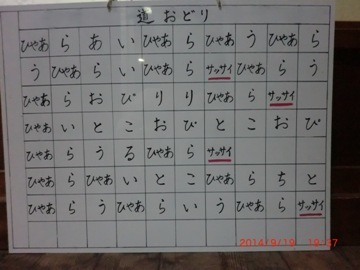 道おどり
ひゃあ ら あ い ひゃあ ら ひゃあ う ひゃあ ら
う ひゃあ ら い ひゃあ ら サッサイ ひゃあ ら う
ひゃあ ら お び り り ひゃあ ら サッサイ
ひゃあ い と こ お び と こ お び
ひゃあ ら う る ひゃあ ら サッサイ
ひゃあ ら ひゃあ い と こ ひゃあ ら ち と
ひゃあ ら う ひゃあ ら い う ひゃあ ら サッサイ
2014/9/19 19:37